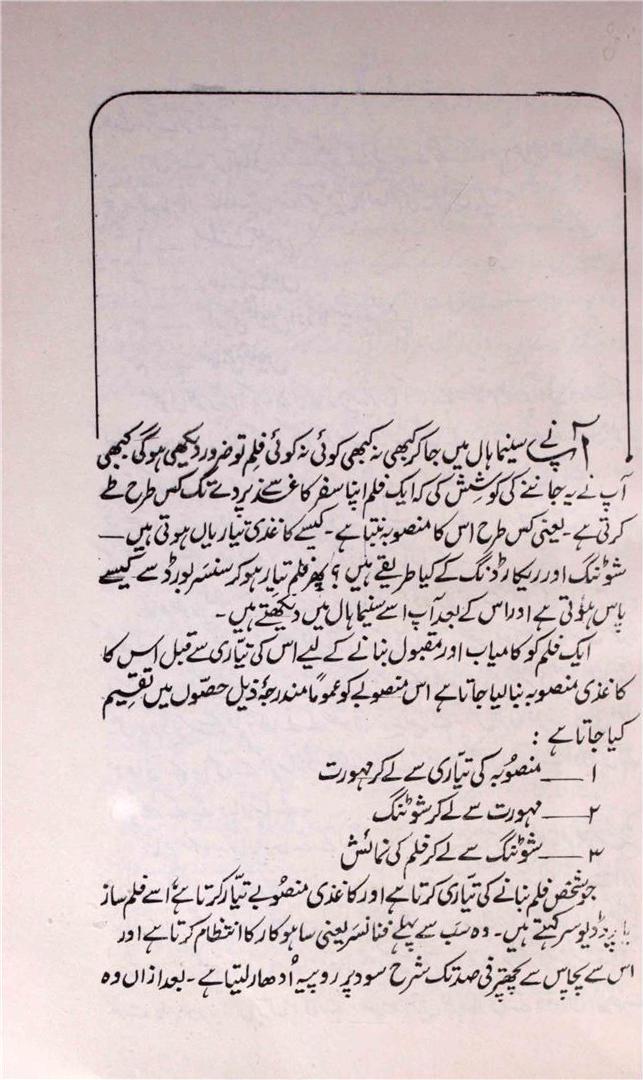 آپ نے سنیما ہال میں جا کر کبھی نہ کبھی کوئی نہ کوئی فلم تو ضرور دیکھی ہوگی کبھی
آپ نے یہ جاننے کی کوشش کی کہ ایک فلم اپنا سفر کاغذ سے پردے تک کس طرح طے
کرتی ہے۔ یعنی کس طرح اس کا منصوبہ بنتا ہے۔ کیسے کاغذی تیاریاں ہوتی ہیں —
شوٹنگ اور ریکارڈنگ کے کیا طریقے ہیں؟ پھر فلم تیار ہو کر سنسر بورڈ سے کیسے
پاس ہوتی ہے اور اس کے بعد آپ اسے سنیما ہال میں دیکھتے ہیں۔
ایک فلم کو کامیاب اور مقبول بنانے کے لیے اس کی تیّاری سے قبل اس کا
کاغذی منصوبہ بنا لیا جاتا ہے اس منصوبے کو عموماً مندرجۂ ذیل حصّوں میں تقسیم
کیا جاتا ہے :
۱ — منصوُبہ کی تیّاری سے لے کر مہورت
۲ — مہورت سے لے کر شوٹنگ
۳ — شوٹنگ سے لے کر فلم کی نمائش
جو شخص فلم بنانے کی تیّاری کرتا ہے اور کاغذی منصوُبے تیّار کرتا ہے، اسے فلم ساز
یا پروڈیوسر کہتے ہیں۔ وہ سب سے پہلے فنانسر یعنی ساہوکار کا انتظام کرتا ہے اور
اس سے پچاس سے پچھتّر فی صد تک شرح سود پر روپیہ اُدھار لیتا ہے۔ بعد ازاں وہ